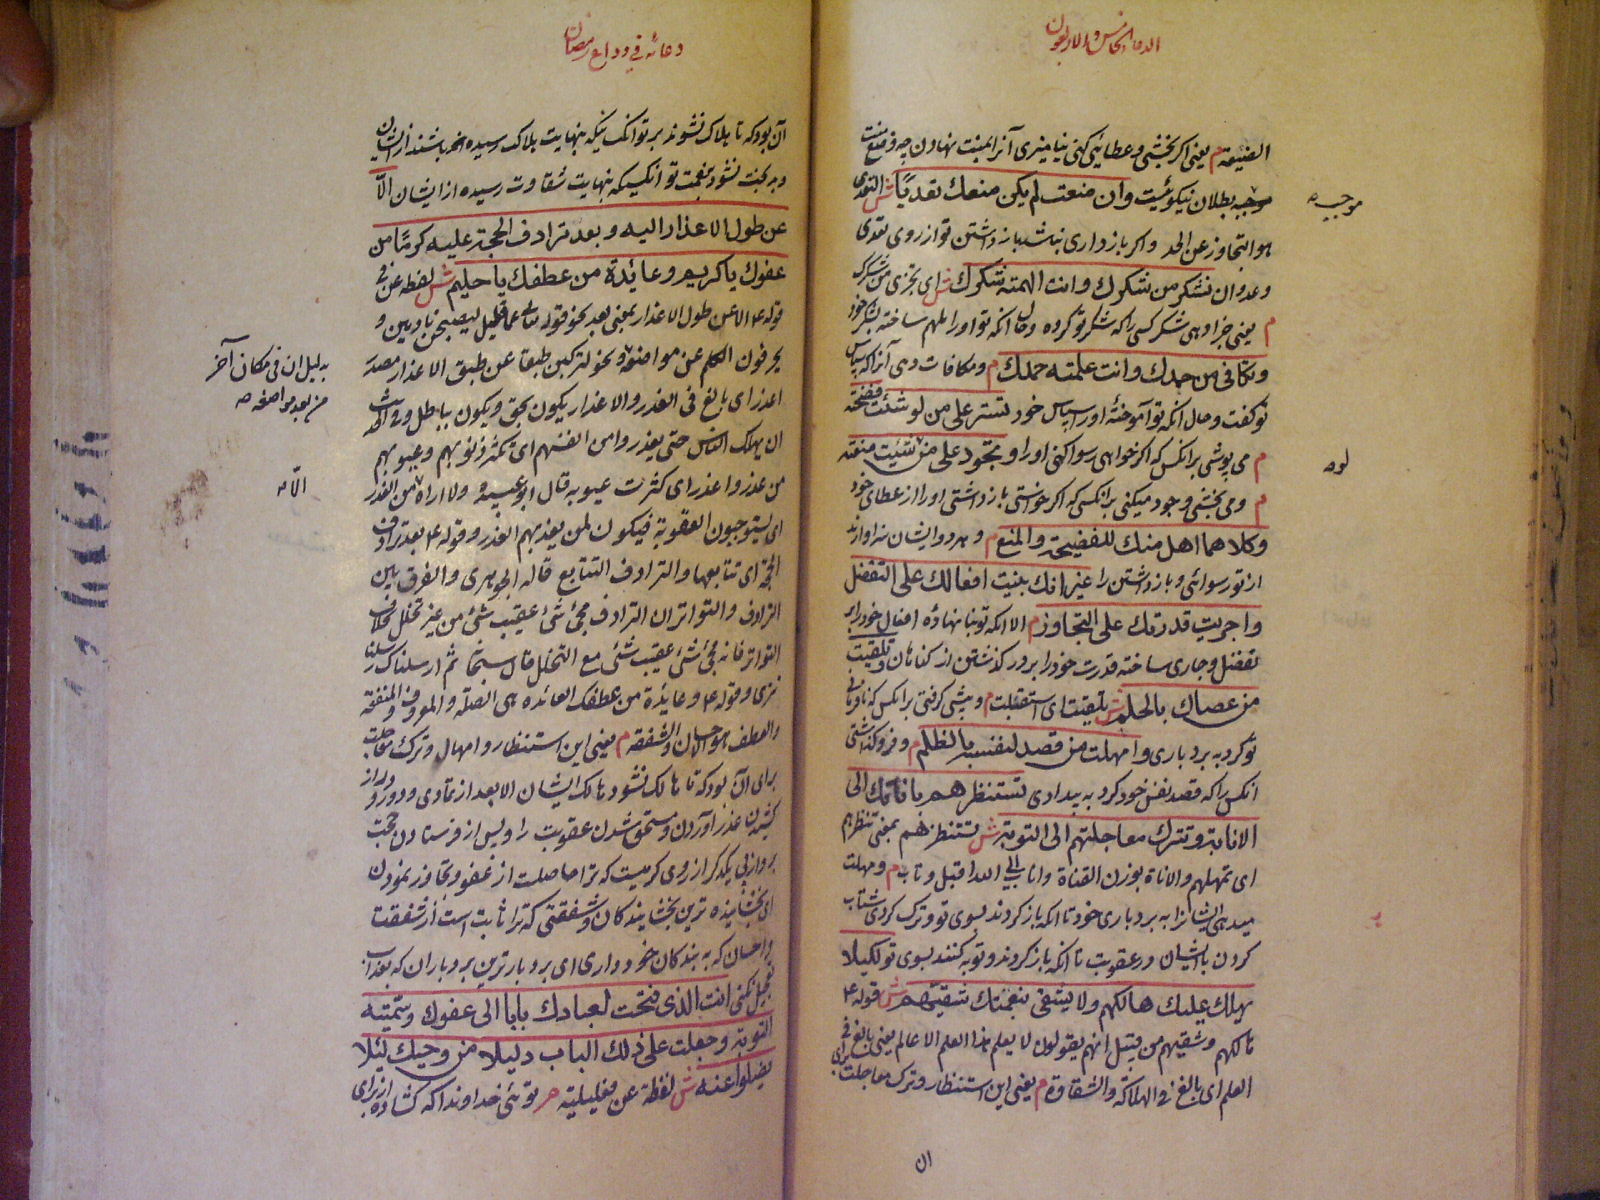 الدعاء الخامس والاربعون
الصنیعه م یعنی اکر بخشی وعطائی کنی نیامیزی آنرا بمنت نهادن چه
موجبه بطلان نیکوئیست وان منعت لم یکن منعك تعدیًا ش التعدی
هو التجاوز عن الحد واکر بازداری نباشد بازداشتن تو از روی تعدی
وعدوان تشکر من شکرك وانت الهمته شکرك ش ای تجزی من شکرک
م یعنی جزا دهی شکر کسی را که شکر تو کرده وحال آنکه تو او را ملهم ساخته بشکر خود
وتکافی من حمدك وانت علمته حمدك م ومکافات دهی آنرا که سپاس
تو کفت وحال آنکه تو آموختهٔ او را سپاس خود تستر علی من لو شئت فضحته
م می پوشی بر آنکس که اکر خواهی رسوا کنی او را وتجود علی من شئت منعته
م ومی بخشی وجود میکنی بر آنکس که اکر خواستی بازداشتی او را از عطای خود
وکلاهما اهل منك للفضیحة والمنع م وهر دو ایشان سزاوارند
از تو رسوائی وبازداشتن را غیر انك بنیت افعالك علی التفضل
واجریت قدرتك علی التجاوز م الا آنکه تو بنا نهادهٔ افعال خود را بر
تفضل وجاری ساخته قدرت خود را بر درکذشتن از کناهان وتلقیت
من عصاك بالحلم ش تلقیت ای استقبلت م وپیش کرفتی بر آنکس که نافرمانی
تو کرد به بردباری وامهلت من قصد لنفسه بالظلم م وفروکذاشتی
آنکس را که قصد نفس خود کرد به بیدادی تستنظرهم باناتك الی
الانابة وتترك معاجلتهم الی التوبة ش تستنظرهم بمعنی تنظرهم
ای تمهلهم والاناة بوزن القناة واناب الی الله اقبل وتاب م ومهلت
میدهی ایشانرا به بردباری خود تا آنکه بازکردند بسوی تو وترک کردی شتاب
کردن با ایشان در عقوبت تا آنکه بازکردند وتوبه کنند بسوی تو لکیلا
یهلك علیك هالکهم ولا یشقی بنعمتك شقیهم ش قوله ع
هالکهم وشقیهم من قبیل انهم یقولون لا یعلم هذا العلم الا عالم یعنی بالغ فی
العلم ای بالغ فی الهلاکة والشقاوة م یعنی این استنظار وترک معاجلت برای
ان
موجبه
لو
دعائه فی وداع رمضان
آن بود که تا هلاک نشوند بر تو آنکسیکه بنهایت هلاکت رسیده باشند از ایشان
وبدبخت نشود بنعمت تو آنکسیکه بنهایت شقاوت رسیده از ایشان الّا
عن طول الاعذار الیه وبعد ترادف الحجة علیه کرمًا من
عفوك یا کریم وعائدة من عطفك یا حلیم ش لفظه عن فی
قوله ع الا عن طول الاعذار بمعنی بعد نحو قوله تعالی عما قلیل لیصبحن نادمین و
یحرفون الکلم عن مواضعه ونحو لترکبن طبقا عن طبق الاعذار مصدر
اعذر ای بالغ فی العذر والاعذار یکون بحق ویکون بباطل وفی الحدیث
لن یهلک الناس حتی یعذروا من انفسهم ای تکثر ذنوبهم وعیوبهم
من عذر واعذر ای کثرت عیوبه قال ابو عبید ولا اراه من العذر
ای یستوجبون العقوبة فیکون لمن یعذبهم العذر وقوله ع بعد ترادف
الحجة ای تتابعها والترادف التتابع قاله الجوهری والفرق بین
الترادف والتواتر ان الترادف مجئ شئ عقیب شئ من غیر تخلل بخلاف
التواتر فانه مجئ شئ عقیب شئ مع التخلل قال سبحانه ثم ارسلنا رسلنا
تتری وقوله ع وعائدة من عطفك العائده هی الصلة والمعروف والمنفعة
والعطف هو الاحسان والشفقة م یعنی این استنظار وامهال وترک معاجلت
برای آن بود که تا هالک نشود هالک ایشان الا بعد از تمادی ودور ودراز
کشیدن عذر آوردن ومستحق شدن عقوبت را وپس از فرستادن حجت
بر وی از پی یکدکر از روی کرمیست که ترا حاصلست از عفو وتجاوز نمودن
ای بخشاینده ترین بخشایندکان وشفقتی که ترا ثابت است از شفقت
واحسان که به بندکان خود داری ای بردبارترین بردباران که بعذاب
تعجیل نکنی انت الذی فتحت لعبادك بابا الی عفوك وسمیته
التوبة وجعلت علی ذلك الباب دلیلا من وحیك لئلا
یضلوا عنه ش لفظة عن تعلیلیة م توئی خداوندا که کشاده از برای
بدلیل ان فی مکان آخر
من بعد مواضعه
الّا